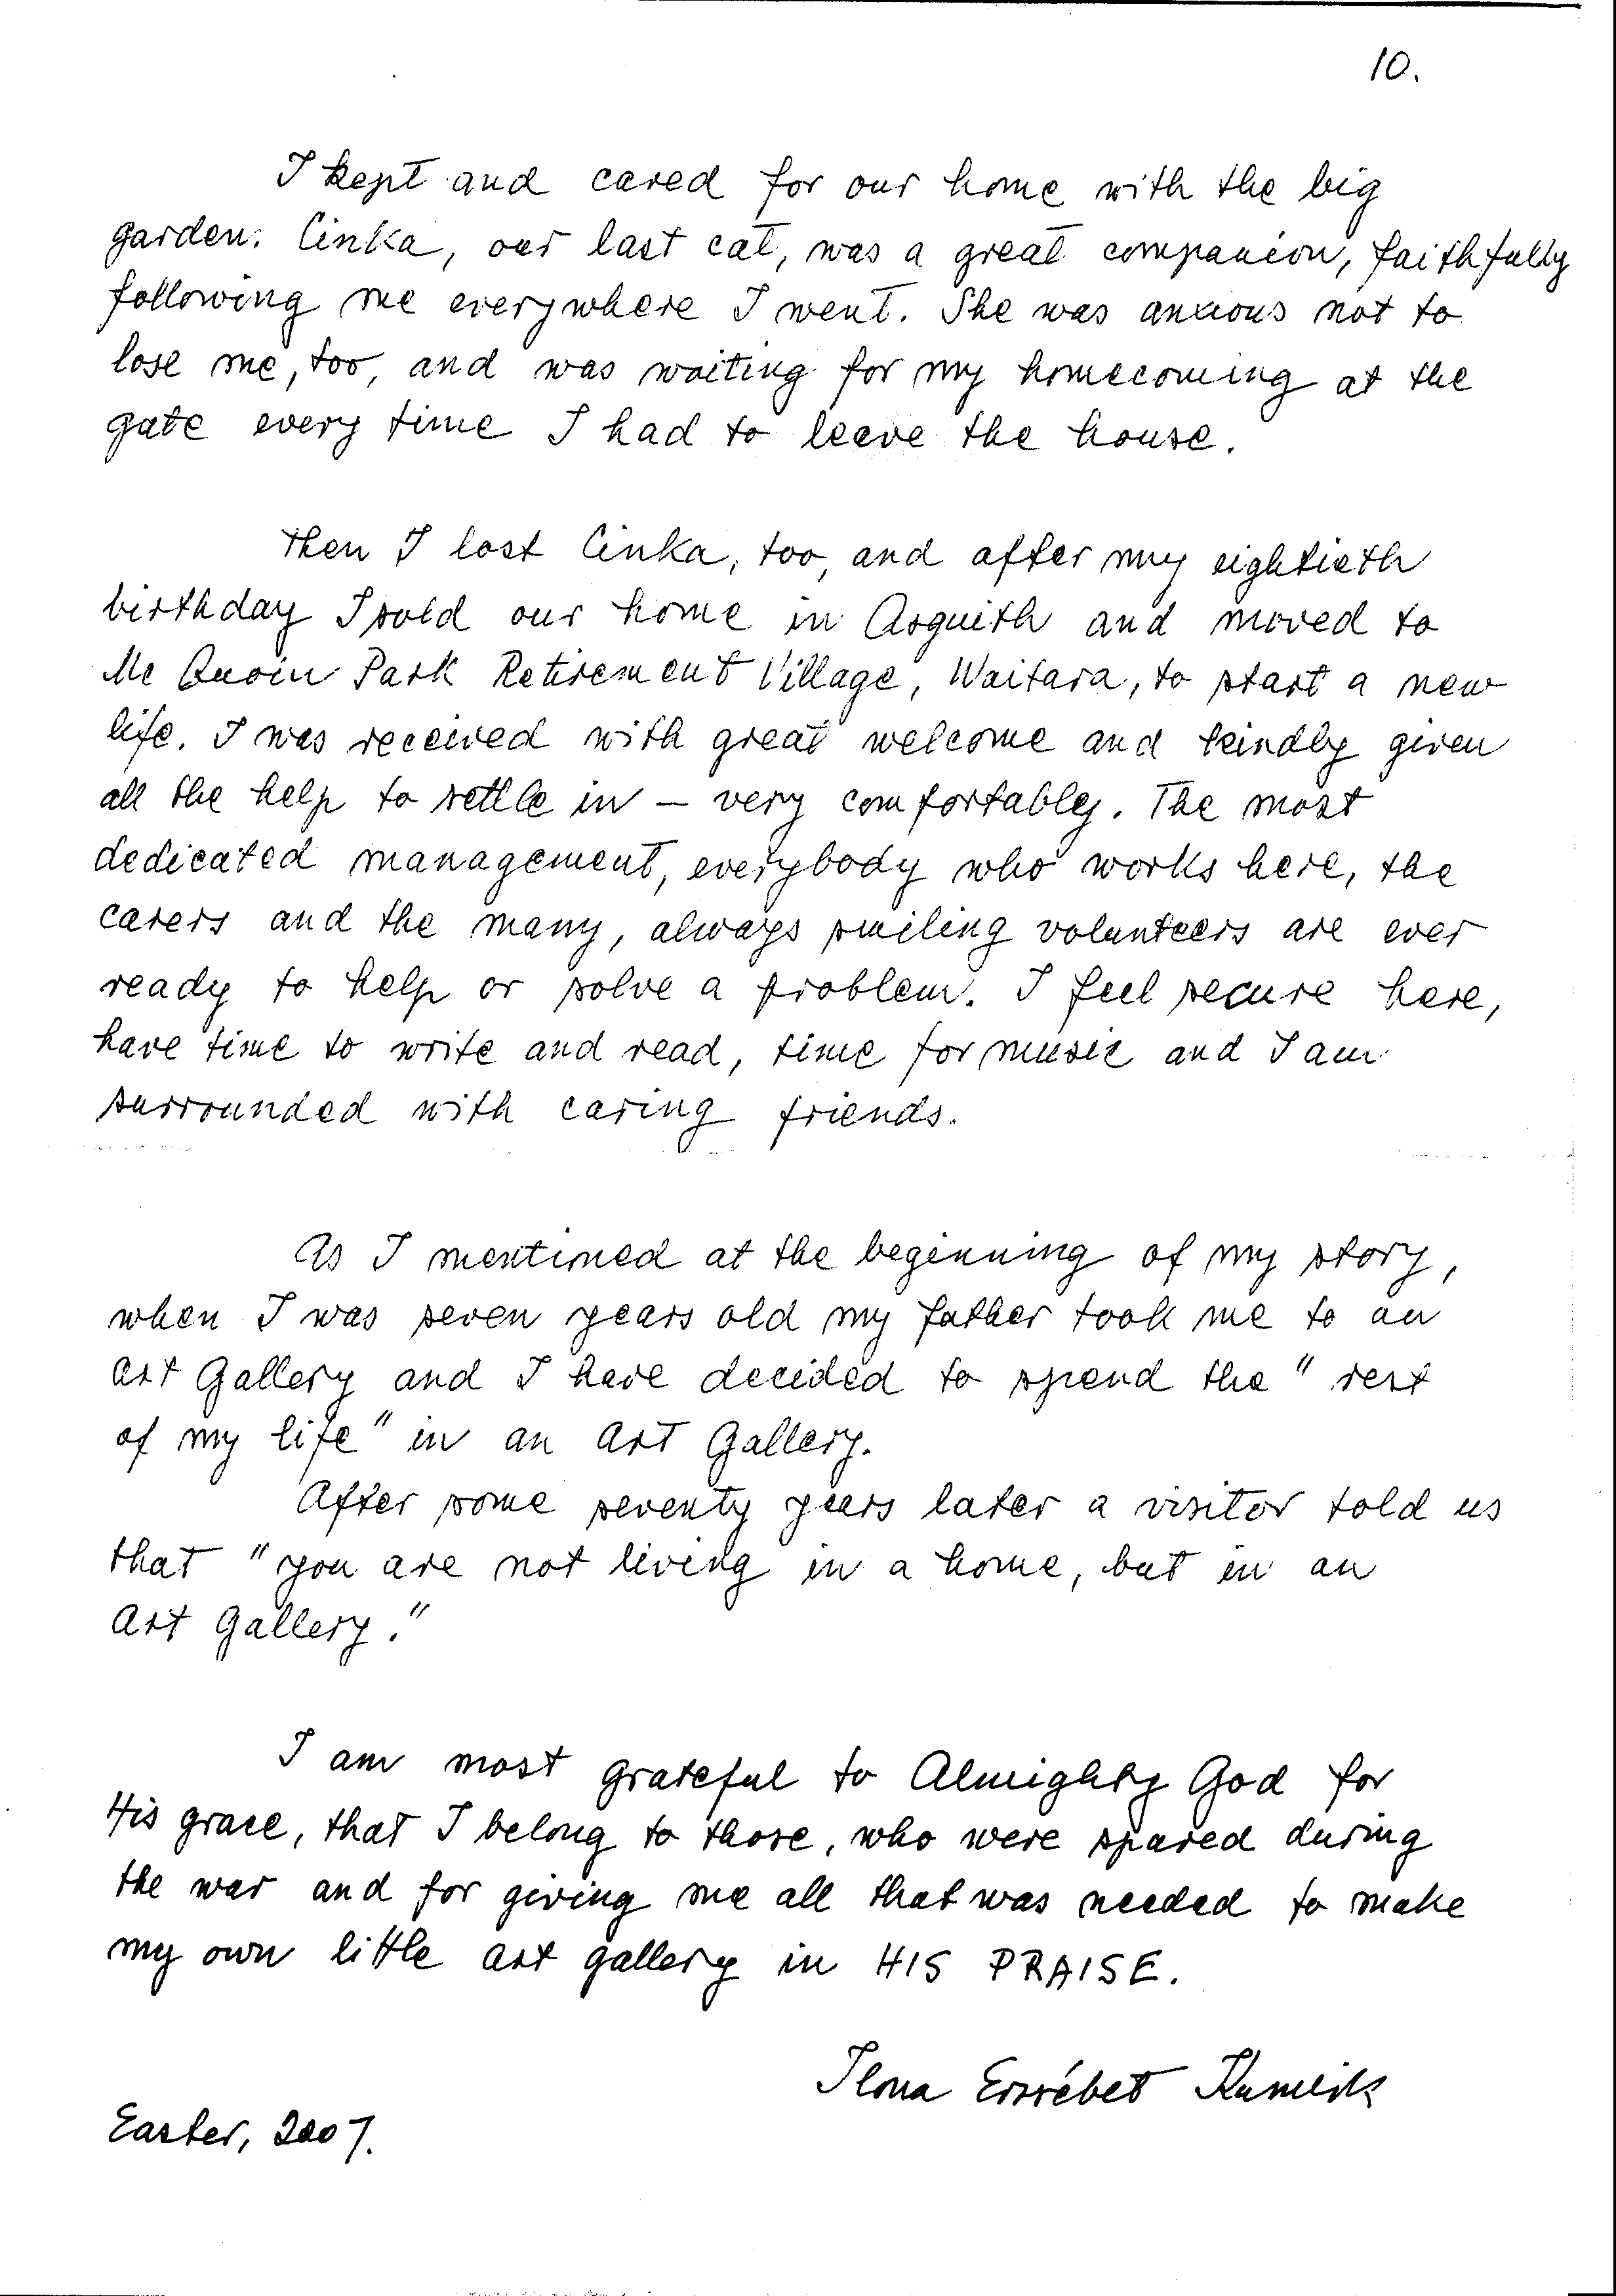 10.
I kept and cared for our home with the big
garden. Cinka, our last cat, was a great companion, faithfully
following me everywhere I went. She was anxious not to
lose me, too, and was waiting for my homecoming at the
gate every time I had to leave the house.
Then I lost Cinka, too, and after my eightieth
birthday I sold our home in Asquith and moved to
Mc Quoin Park Retirement Village, Waitara, to start a new
life. I was received with great welcome and kindly given
all the help to settle in – very comfortably. The most
dedicated management, everybody who works here, the
carers and the many, always smiling volunteers are ever
ready to help or solve a problem. I feel secure here,
have time to write and read, time for music and I am
surrounded with caring friends.
As I mentioned at the beginning of my story,
when I was seven years old my father took me to an
Art Gallery and I have decided to spend the "rest
of my life" in an Art Gallery.
After some seventy years later a visitor told us
that "you are not living in a home, but in an
Art Gallery."
I am most grateful to Almighty God for
His grace, that I belong to those, who were spared during
the war and for giving me all that was needed to make
my own little art gallery in HIS PRAISE.
Ilona Erzsébet
Easter, 2007.